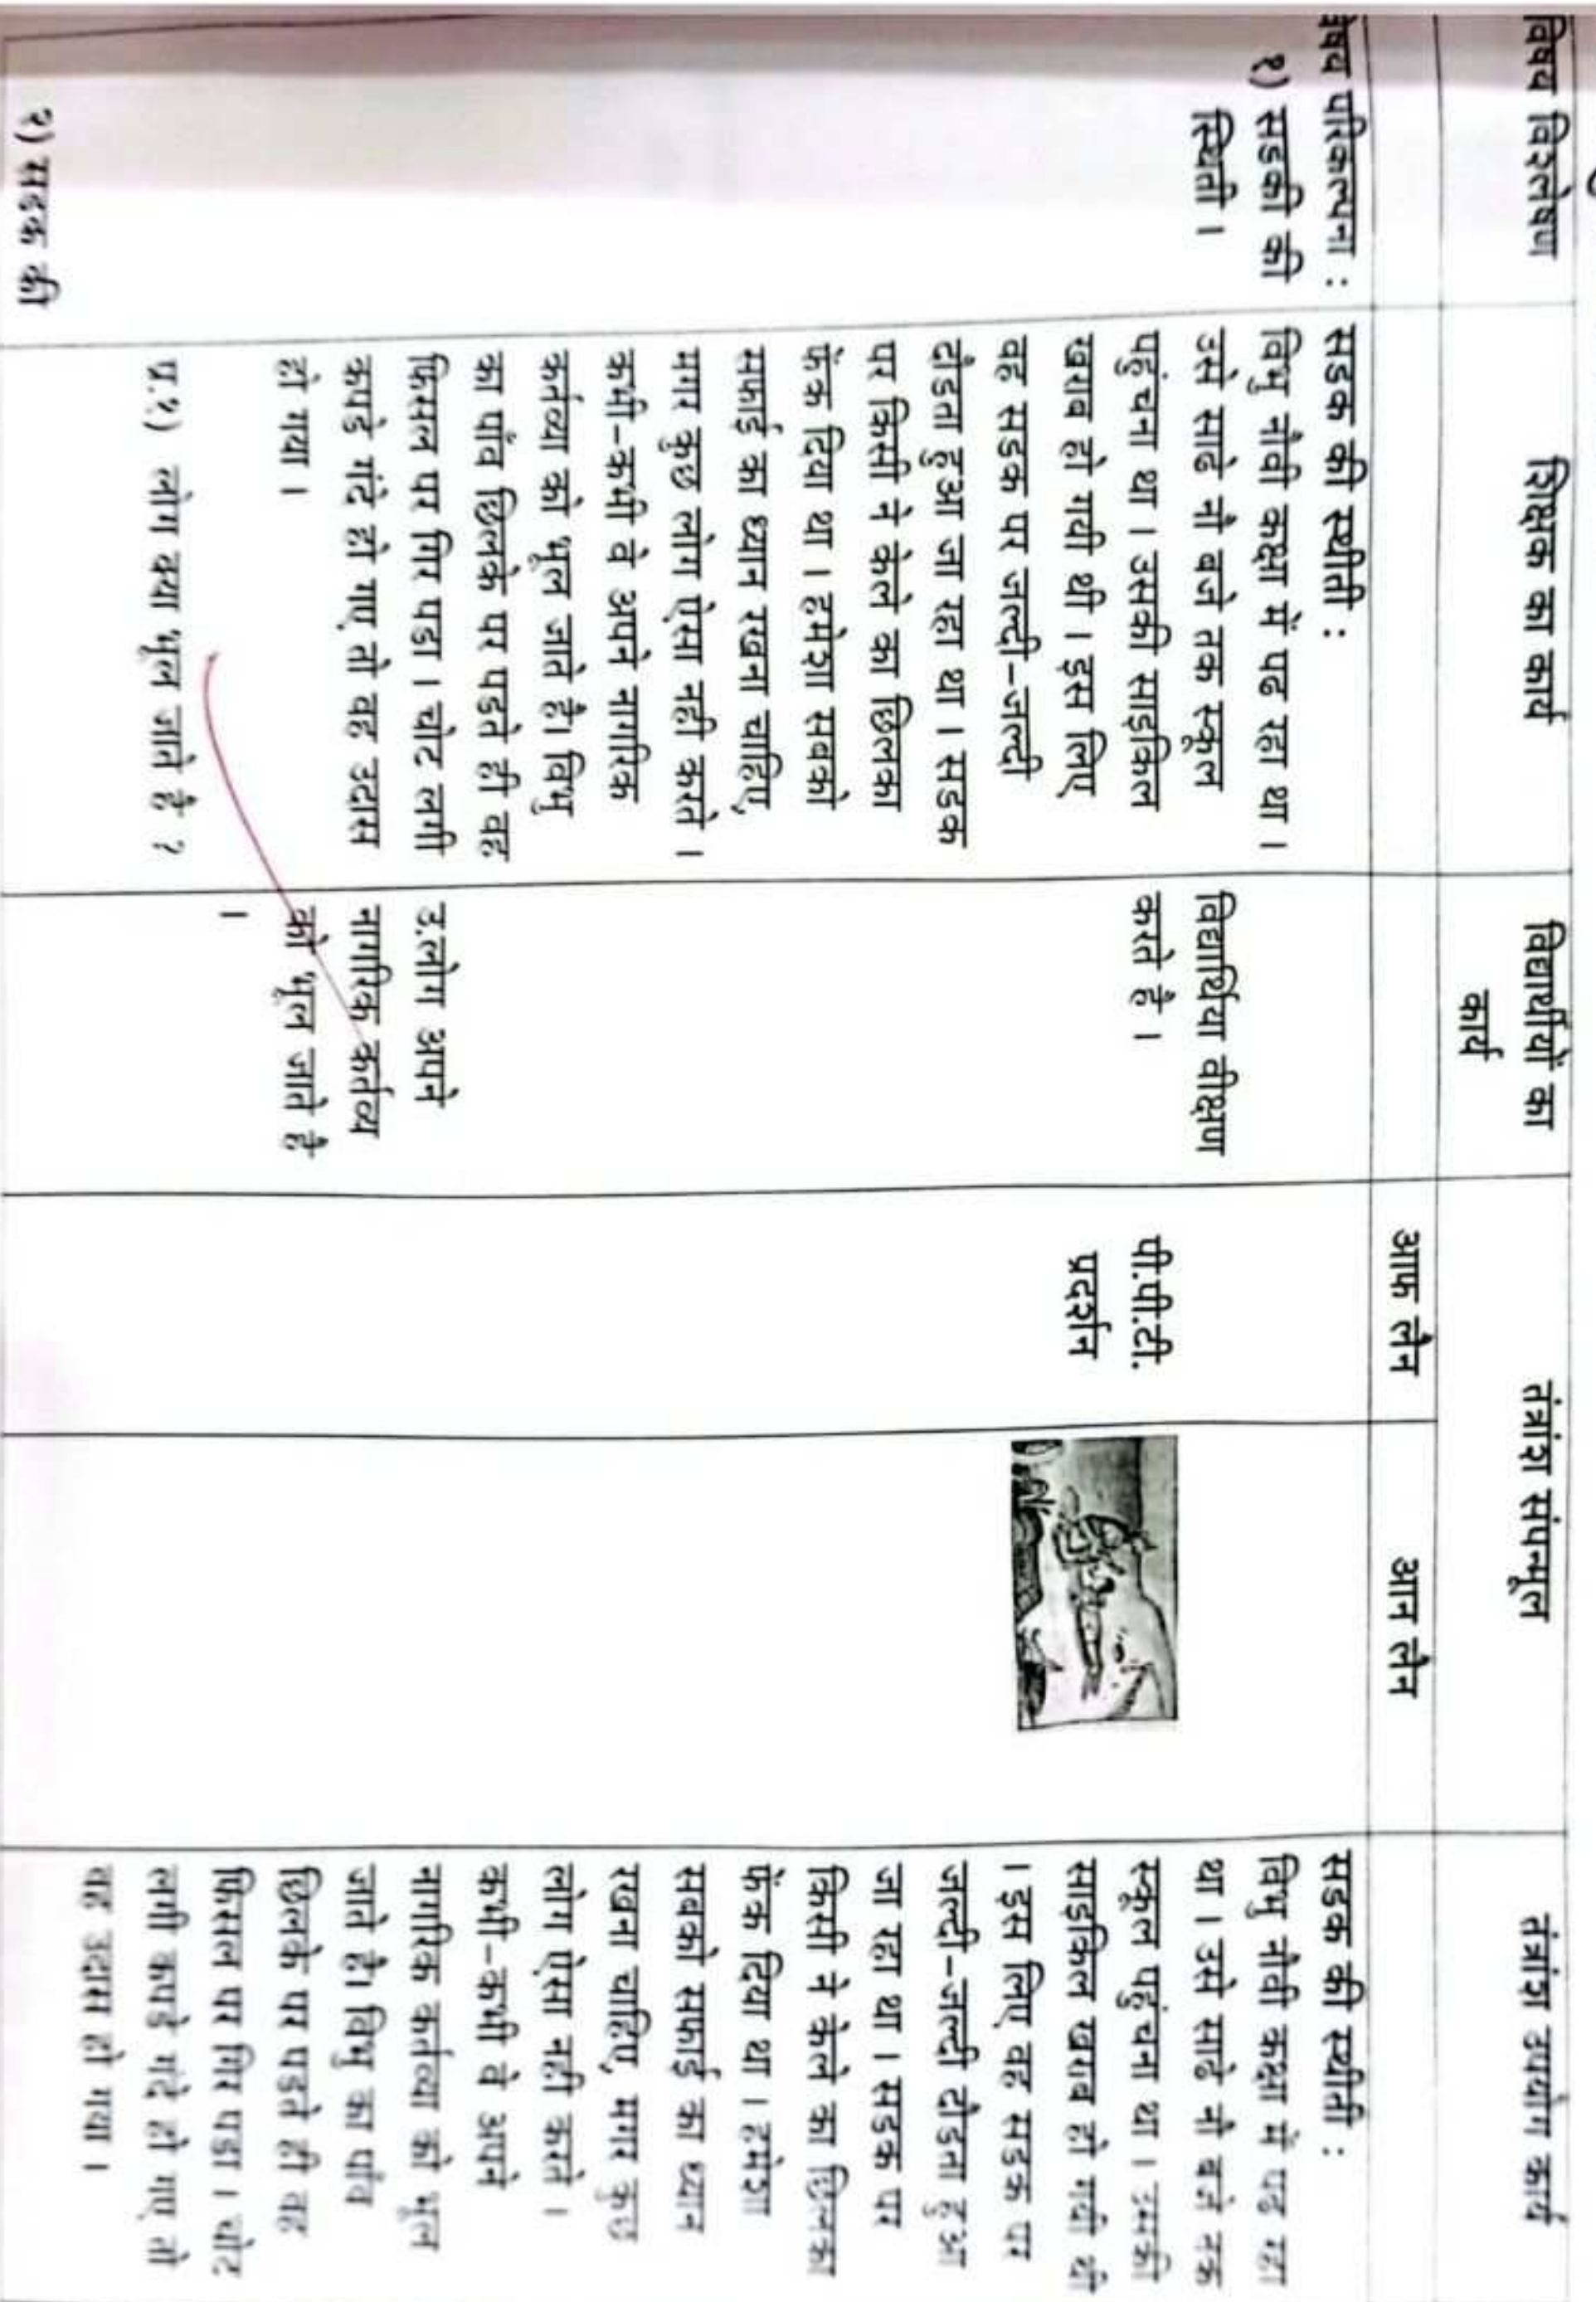 विषय विश्लेषण
शिक्षक का कार्य
विद्यार्थीयों का
कार्य
तंत्रांश संपन्मूल
तंत्रांश उपयोग कार्य
आफ लैन
आन लैन
विषय परिकल्पना :
१) सडकी की
स्थिती ।
सडक की स्थीती :
विभु नौवी कक्षा में पढ रहा था ।
उसे साढे नौ बजे तक स्कूल
पहुंचना था । उसकी साइकिल
खराब हो गयी थी । इस लिए
वह सडक पर जल्दी-जल्दी
दौडता हुआ जा रहा था । सडक
पर किसी ने केले का छिलका
फेंक दिया था । हमेशा सबको
सफाई का ध्यान रखना चाहिए,
मगर कुछ लोग ऐसा नही करते ।
कभी-कभी वे अपने नागरिक
कर्तव्या को भूल जाते है। विभु
का पांव छिलके पर पडते ही वह
फिसल पर गिर पडा । चोट लगी
कपडे गंदे हो गए तो वह उदास
हो गया ।
प्र.१) लोग क्या भूल जाते है ?
विद्यार्थिया वीक्षण
करते है ।
उ.लोग अपने
नागरिक कर्तव्य
को भूल जाते है
।
पी.पी.टी.
प्रदर्शन
सडक की स्थीती :
विभु नौवी कक्षा में पढ रहा
था । उसे साढे नौ बजे तक
स्कूल पहुंचना था । उसकी
साइकिल खराब हो गयी थी
। इस लिए वह सडक पर
जल्दी-जल्दी दौडता हुआ
जा रहा था । सडक पर
किसी ने केले का छिलका
फेंक दिया था । हमेशा
सबको सफाई का ध्यान
रखना चाहिए, मगर कुछ
लोग ऐसा नही करते ।
कभी-कभी वे अपने
नागरिक कर्तव्या को भूल
जाते है। विभु का पांव
छिलके पर पडते ही वह
फिसल पर गिर पडा । चोट
लगी कपडे गंदे हो गए तो
वह उदास हो गया ।
२) सडक की